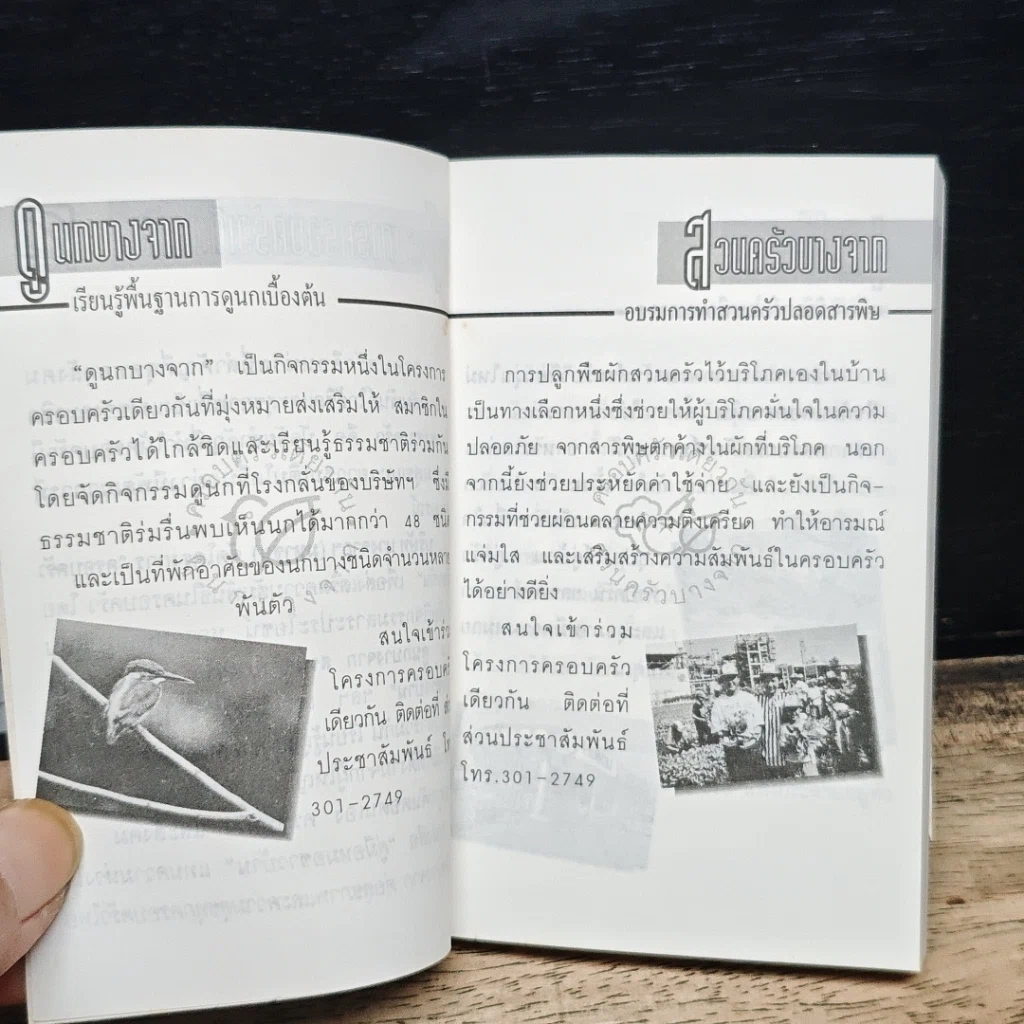 ดูนกบางจาก
เรียนรู้พื้นฐานการดูนกเบื้องต้น
“ดูนกบางจาก” เป็นกิจกรรมหนึ่งในโครงการ
ครอบครัวเดียวกันที่มุ่งหมายส่งเสริมให้ สมาชิกใน
ครอบครัวได้ใกล้ชิดและเรียนรู้ธรรมชาติร่วมกัน
โดยจัดกิจกรรมดูนกที่โรงกลั่นของบริษัทฯ ซึ่งมี
ธรรมชาติร่มรื่นพบเห็นนกได้มากกว่า 48 ชนิด
และเป็นที่พักอาศัยของนกบางชนิดจำนวนหลาย
พันตัว
สนใจเข้าร่วม
โครงการครอบครัว
เดียวกัน ติดต่อที่
ประชาสัมพันธ์
301-2749
สวนครัวบางจาก
อบรมการทำสวนครัวปลอดสารพิษ
การปลูกพืชผักสวนครัวไว้บริโภคเองในบ้าน
เป็นทางเลือกหนึ่งซึ่งช่วยให้ผู้บริโภคมั่นใจในความ
ปลอดภัย จากสารพิษตกค้างในผักที่บริโภค นอก
จากนี้ยังช่วยประหยัดค่าใช้จ่าย และยังเป็นกิจ-
กรรมที่ช่วยผ่อนคลายความตึงเครียด ทำให้อารมณ์
แจ่มใส และเสริมสร้างความสัมพันธ์ในครอบครัว
ได้อย่างดียิ่ง
สนใจเข้าร่วม
โครงการครอบครัว
เดียวกัน ติดต่อที่
ส่วนประชาสัมพันธ์
โทร.301-2749